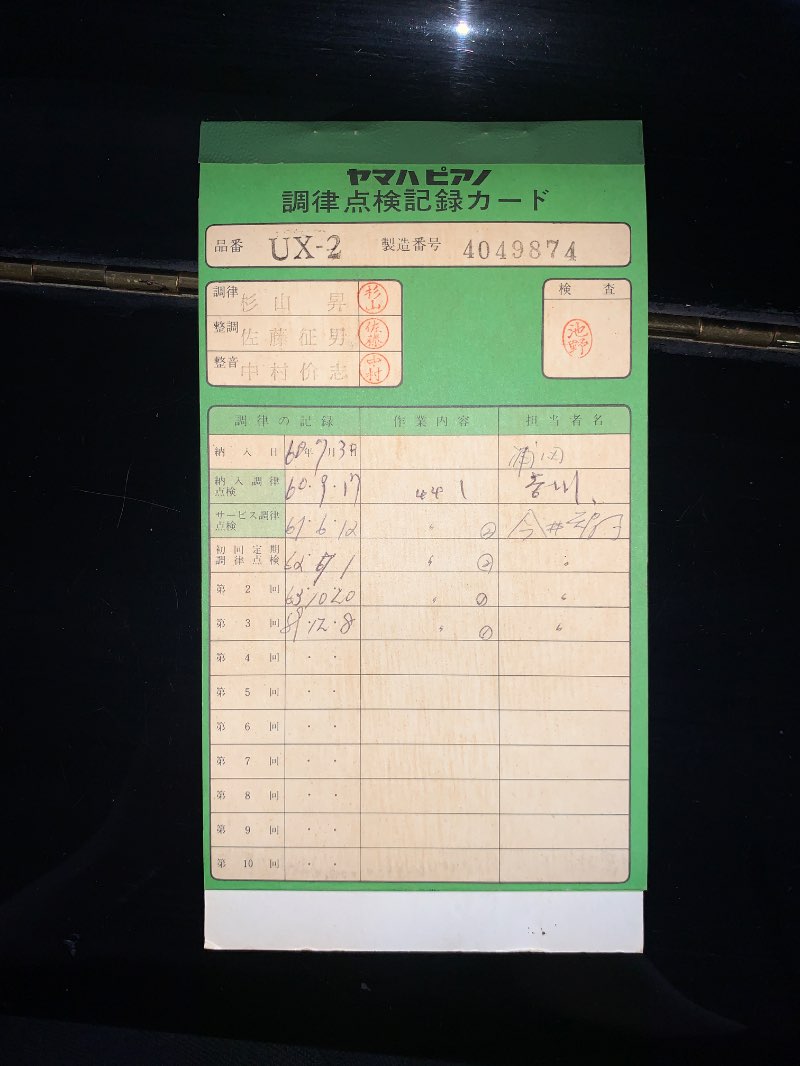 ヤマハピアノ
調律点検記録カード
品番 UX-2 製造番号 4049874
調律 杉山 昇 杉山
整調 佐藤征男 佐藤
整音 中村价志 中村
検査
池野
調律の記録 作業内容 担当者名
納入日 60年7月3日
納入調律点検 60・9・17 441
サービス調律点検 61・6・12 〃 今井
初回定期調律点検 62 1 〃 〃
第2回 63・10・20 〃 〃
第3回 12・8 〃 〃
第4回 ・ ・
第5回 ・ ・
第6回 ・ ・
第7回 ・ ・
第8回 ・ ・
第9回 ・ ・
第10回 ・ ・